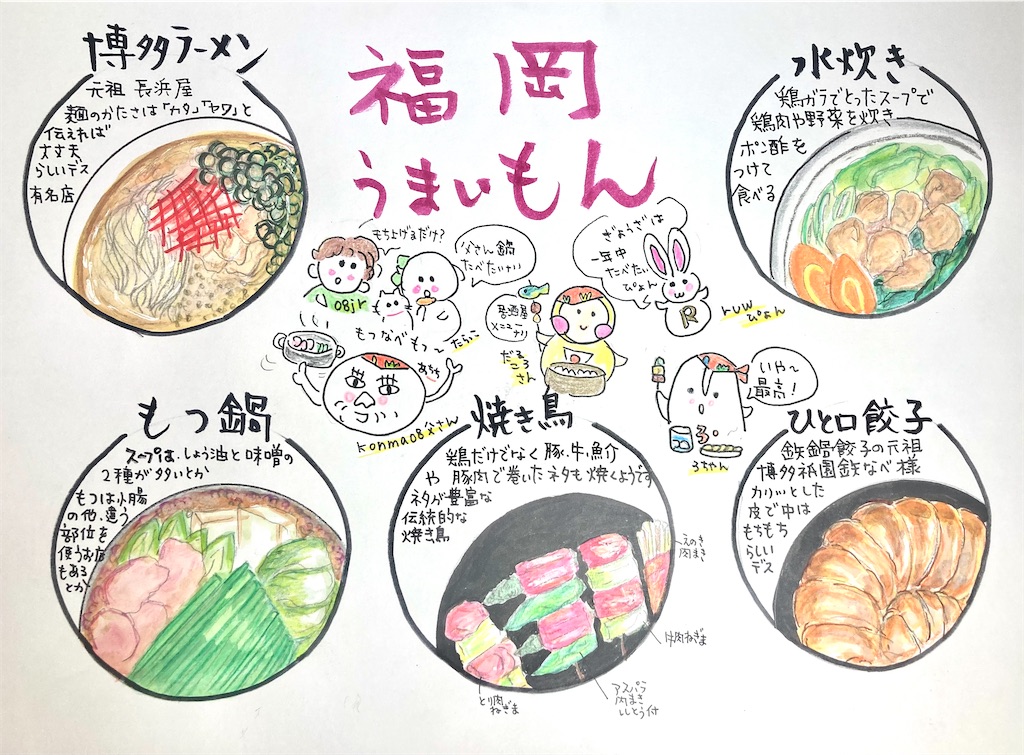 福岡
うまいもん
博多ラーメン
元祖 長浜屋
麺のかたさは「カタ」「ヤワ」と
伝えれば
大丈夫
らしいデス
有名店
水炊き
鶏ガラでとったスープで
鶏肉や野菜を炊き
ポン酢を
つけて
食べる
もちよげるだけ?
父さん鍋
たべたいナい
08jr
もつなべもつ〜
たらこ
あちち
konma08父さん
居酒屋
メニュー
ナリ
だる
ころ
さん
ぎょうざは
一年中
たべたい
ぴょん
R
ruw
ぴょん
いや〜
最高!
ろちゃん
もつ鍋
スープは、しょう油と味噌の
2種が多いとか
もつは小腸
の他、違う
部位を
使うお店
もある
とか
焼き鳥
鶏だけどなく豚、牛、魚介
や 豚肉で巻いたネタも焼くようです
ネタが豊富な
伝統的な
焼き鳥
えのき
肉まき
牛肉ねぎま
アスパラ
肉まき
ししとう付
とり肉
ねぎま
ひと口餃子
鉄鍋餃子の元祖
博多祇園鉄なべ様
カリッとした
皮で中は
もちもち
らしい
デス